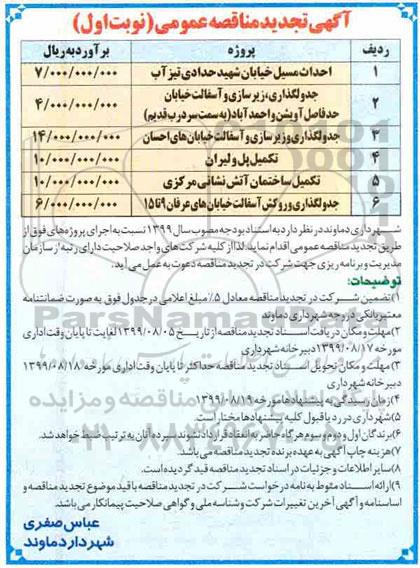 آگهی تجدید مناقصه عمومی (نوبت اول)
ردیف پروژه برآورد به ریال
۱ احداث مسیل خیابان شهید حدادی تیز آب ۷/۰۰۰/۰۰۰/۰۰۰
۲ جدولگذاری، زیرسازی و آسفالت خیابان
حدفاصل آویشن و احمدآباد (به سمت سردرب قدیم) ۴/۰۰۰/۰۰۰/۰۰۰
۳ جدولگذاری و زیرسازی و آسفالت خیابان های احسان ۱۴/۰۰۰/۰۰۰/۰۰۰
۴ تکمیل پل ولیران ۱۰/۰۰۰/۰۰۰/۰۰۰
۵ تکمیل ساختمان آتش نشانی مرکزی ۱۰/۰۰۰/۰۰۰/۰۰۰
۶ جدولگذاری و روکش آسفالت خیابان های عرفان ۹ تا ۱۵ ۶/۰۰۰/۰۰۰/۰۰۰
شهرداری دماوند در نظر دارد به استناد بودجه مصوب سال ۱۳۹۹ نسبت به اجرای پروژه های فوق از
طریق تجدید مناقصه عمومی اقدام نماید. لذا از کلیه شرکت های واجد صلاحیت دارای رتبه از سازمان
مدیریت و برنامه ریزی جهت شرکت در تجدید مناقصه دعوت به عمل می آید.
توضیحات:
۱) تضمین شرکت در تجدید مناقصه معادل ۵٪ مبلغ اعلامی در جدول فوق به صورت ضمانتنامه
معتبر بانکی در وجه شهرداری دماوند
۲) مهلت و مکان دریافت اسناد تجدید مناقصه از تاریخ ۱۳۹۹/۰۸/۰۵ لغایت تا پایان وقت اداری
مورخه ۱۳۹۹/۰۸/۱۷ دبیرخانه شهرداری
۳) مهلت و مکان تحویل اسناد تجدید مناقصه حداکثر تا پایان وقت اداری مورخه ۱۳۹۹/۰۸/۱۸
دبیرخانه شهرداری
۴) زمان رسیدگی به پیشنهادها مورخه ۱۳۹۹/۰۸/۱۹
۵) شهرداری در رد یا قبول کلیه پیشنهادها مختار است.
۶) برندگان اول و دوم و سوم هرگاه حاضر به انعقاد قرارداد نشوند سپرده آنان به ترتیب ضبط خواهد شد.
۷) هزینه چاپ آگهی به عهده برنده تجدید مناقصه می باشد.
۸) سایر اطلاعات و جزئیات در اسناد تجدید مناقصه قید گردیده است.
۹) ارائه اسناد منوط به نامه درخواست شرکت در تجدید مناقصه با قید موضوع تجدید مناقصه و
اساسنامه و آگهی آخرین تغییرات شرکت و شناسه ملی و گواهی صلاحیت پیمانکار می باشد.
عباس صفری
شهردار دماوند